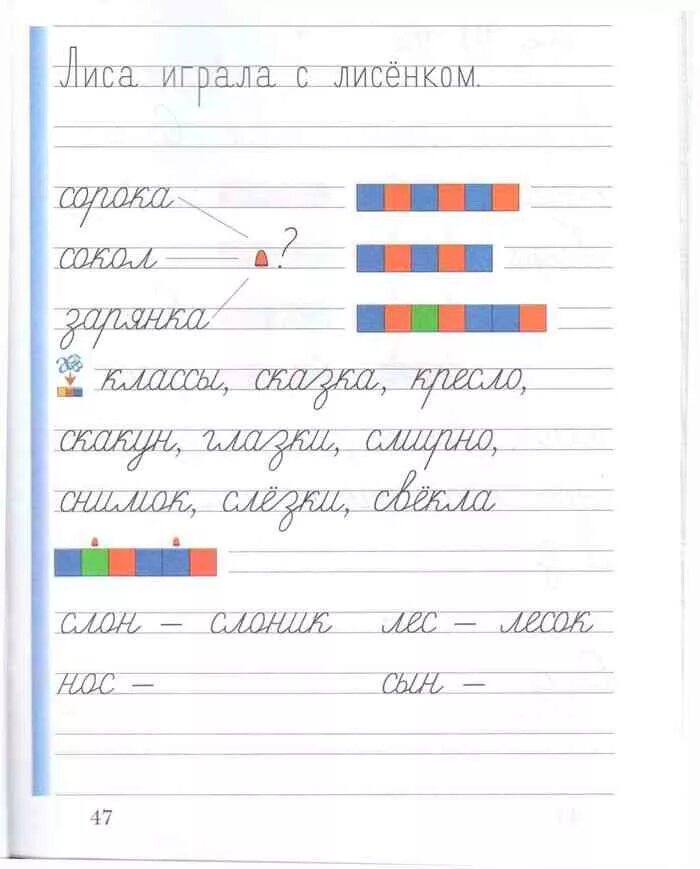 Лиса играла с лисёнком.
сорока
сокол ?
зарянка
классы, сказка, кресло,
скакун, глазки, смирно,
снимок, слёзки, свёкла
слон – слоник лес – лесок
нос – сын –
47